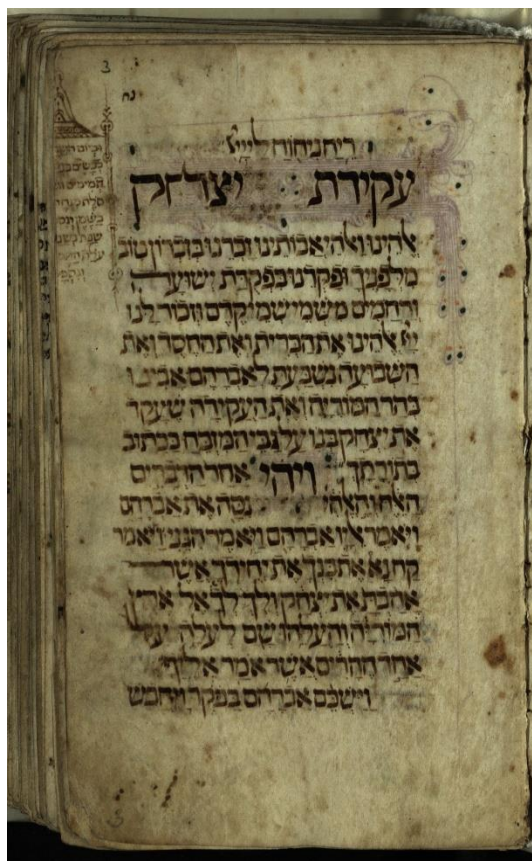 3
נח
ריח ניחוח לייי
עקידת יצחק
אלהינו ואלהי אבותינו זכרנו בזכרון טוב
מלפניך ופקדנו בפקדת ישועה
ורחמים משמי שמי קדם וזכור לנו
יי אלהינו את הברית ואת החסד ואת
השבועה שנשבעת לאברהם אבינו
בהר המוריה ואת העקידה שעקד
את יצחק בנו על גבי המזבח ככתוב
בתורתך ויהי אחר הדברים
האלה והאלהי נסה את אברהם
ויאמר אליו אברהם ויאמר הנני ויאמר
קח נא את בנך את יחידך אשר
אהבת את יצחק ולך לך אל ארץ
המוריה והעלהו שם לעלה על
אחד ההרים אשר אמר אליך
וישכם אברהם בבקר ויחבש
וביום